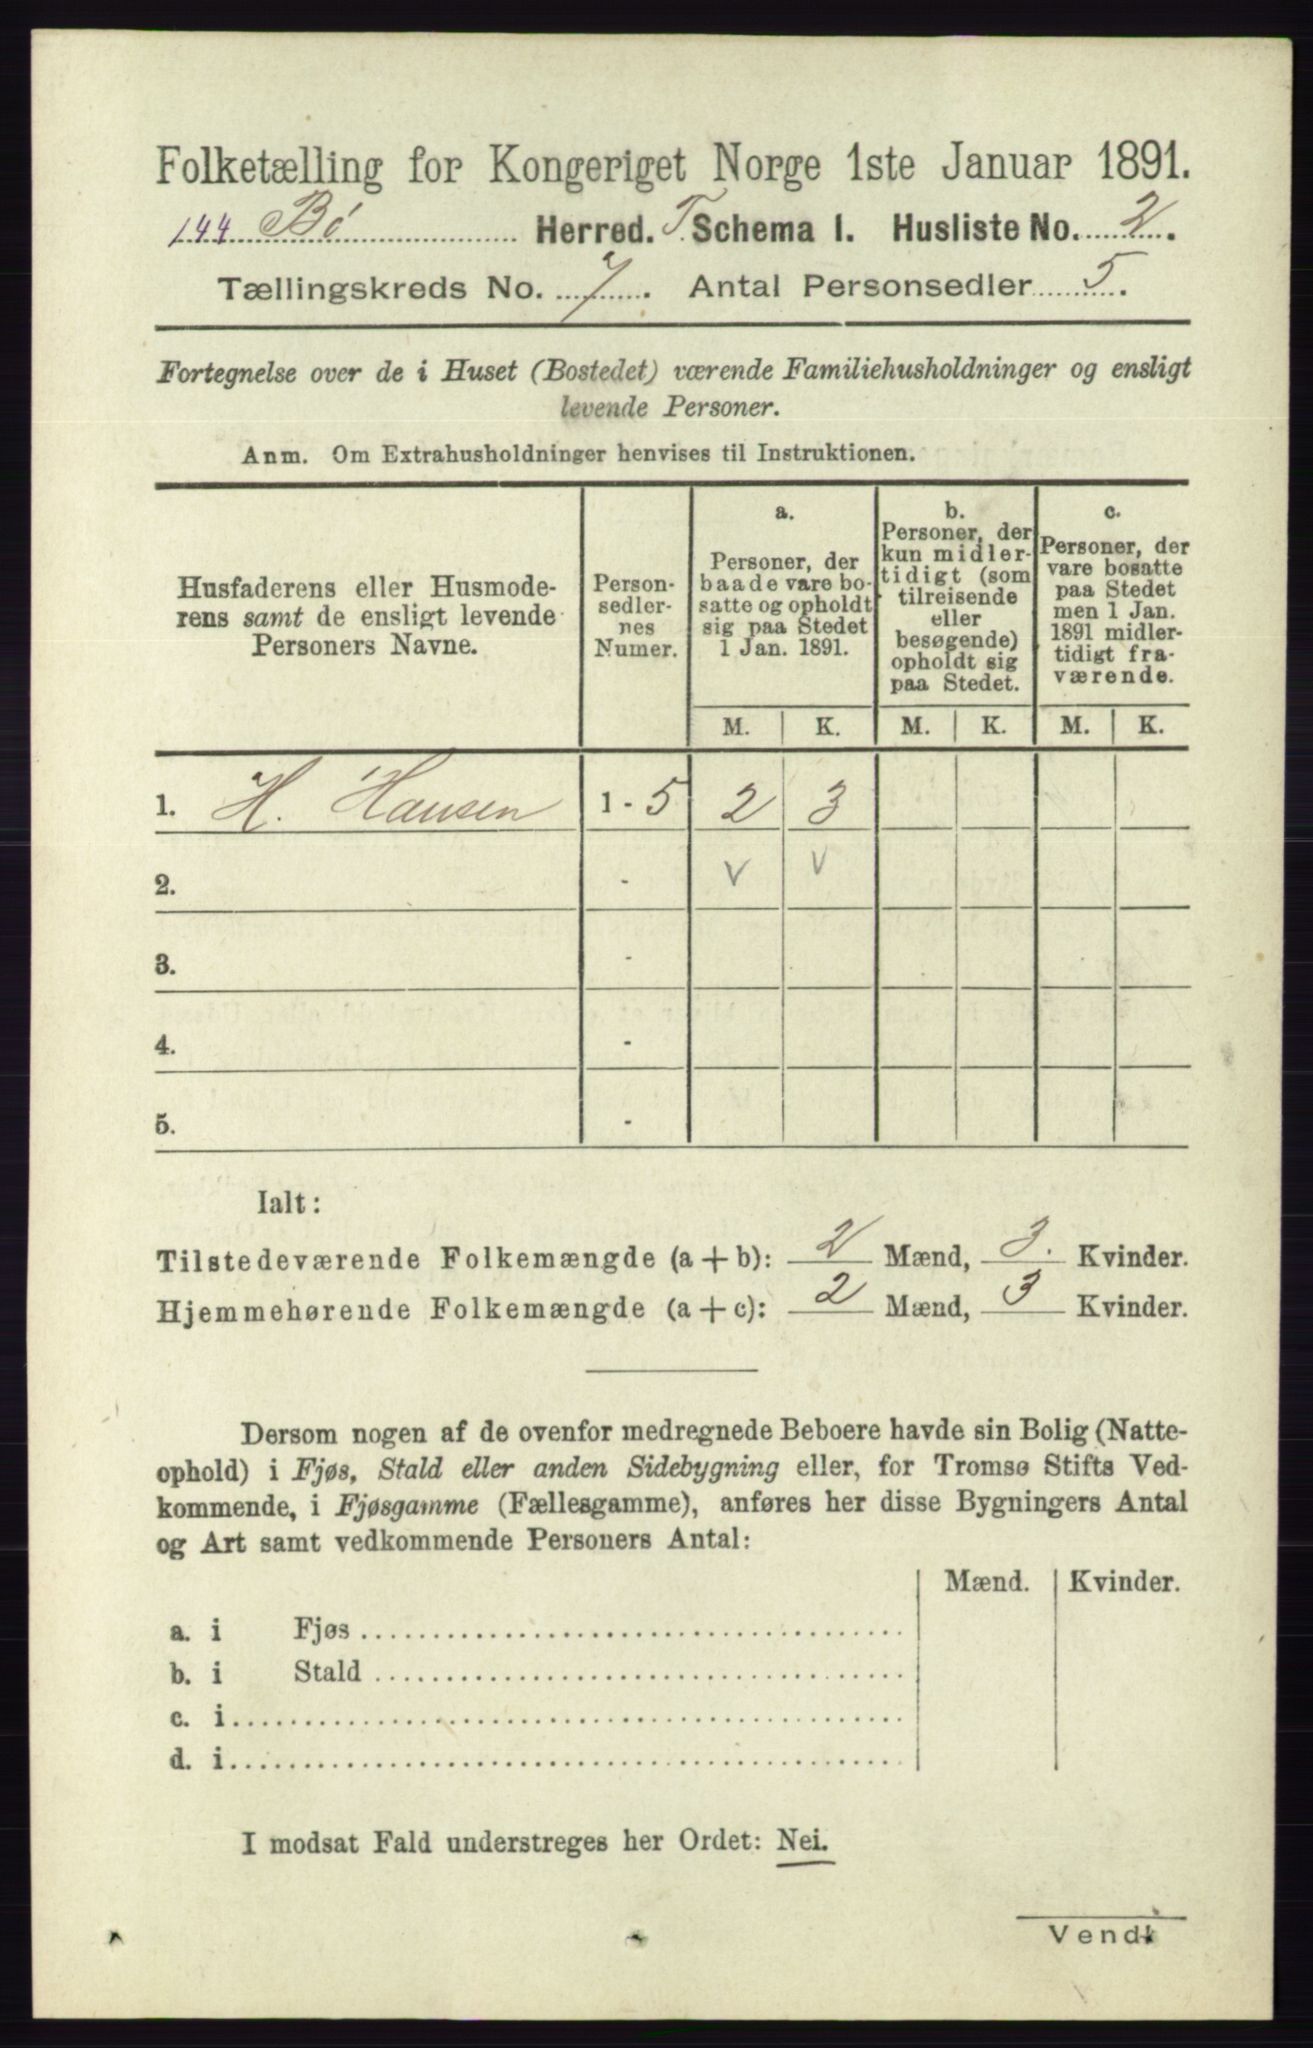 Folketælling for Kongeriget Norge 1ste Januar 1891.
144 Bø Herred. T. Schema I. Husliste No. 2.
Tællingskreds No. 7. Antal Personsedler 5.
Fortegnelse over de i Huset (Bostedet) værende Familiehusholdninger og ensligt
levende Personer.
Anm. Om Extrahusholdninger henvises til Instruktionen.
Husfaderens eller Husmode-
rens samt de ensligt levende
Personers Navne.
Person-
sedler-
nes
Numer.
a.
Personer, der
baade vare bo-
satte og opholdt
sig paa Stedet
1 Jan. 1891.
b.
Personer, der
kun midler-
tidigt (som
tilreisende
eller
besøgende)
opholdt sig
paa Stedet.
c.
Personer, der
vare bosatte
paa Stedet
men 1 Jan.
1891 midler-
tidigt fra-
værende.
M. K. M. K. M. K.
1. H. Hansen 1 - 5 2 3
2. - v v
3. -
4. -
5. -
Ialt:
Tilstedeværende Folkemængde (a + b): 2 Mænd, 3. Kvinder.
Hjemmehørende Folkemængde (a + c): 2 Mænd, 3 Kvinder.
Dersom nogen af de ovenfor medregnede Beboere havde sin Bolig (Natte-
ophold) i Fjøs, Stald eller anden Sidebygning eller, for Tromsø Stifts Ved-
kommende, i Fjøsgamme (Fællesgamme), anføres her disse Bygningers Antal
og Art samt vedkommende Personers Antal:
Mænd. Kvinder.
a. i Fjøs
b. i Stald
c. i
d. i
I modsat Fald understreges her Ordet: Nei.
Vend!